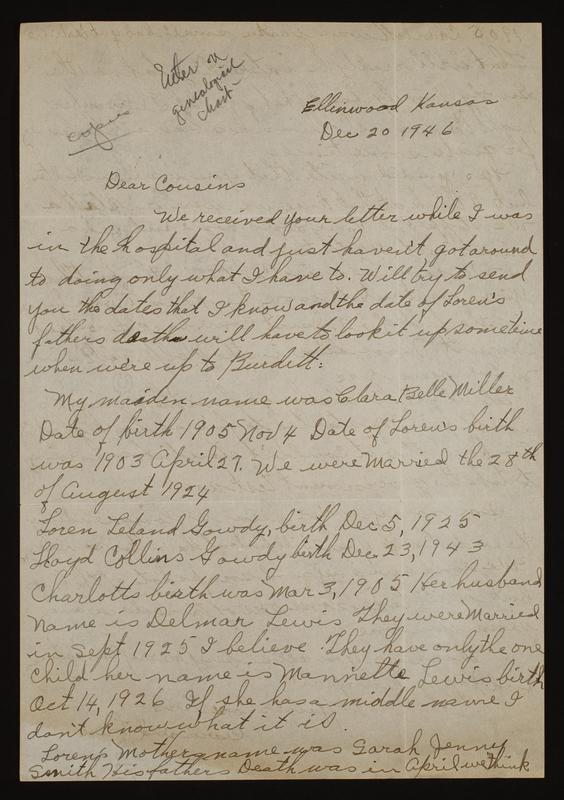 Enter on
genealogical
chart
copies
Ellinwood Kansas
Dec 20 1946
Dear Cousins
We received your letter while I was
in the hospital and just haven't got around
to doing only what I have to. Will try to send
you the dates that I know and the date of Loren's
fathers death will have to look it up sometime
when we're up to Burdett.
My maiden name was Clara Belle Miller
Date of birth 1905 Nov 4 Date of Loren's birth
was 1903 April 27. We were Married the 28th
of August 1924
Loren Leland Gowdy, birth Dec 5, 1925
Lloyd Collins Gowdy birth Dec. 23, 1943
Charlotts birth was Mar 3, 1905 Her husband
name is Delmar Lewis They were Married
in Sept 1925 I believe. They have only the one
child her name is Mannette Lewis birth
Oct 14, 1926 If she has a middle name I
don't know what it is.
Lorens Mothers name was Sarah Jenny
Smith His fathers Death was in April we think